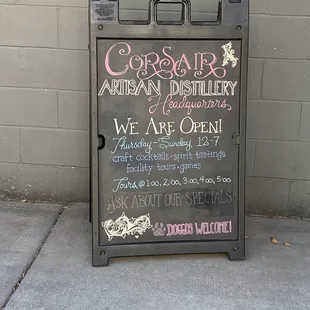 Corsair
Artisan Distillery
Headquarters
We Are Open!
Thursday-Sunday 12-7
craft cocktails • spirit tastings
facility tours • games
Tours @ 1:00, 2:00, 3:00, 4:00, 5:00
Ask About Our Specials
Doggos Welcome!